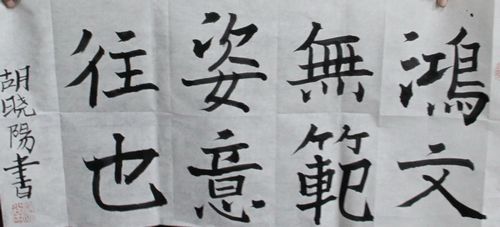 鴻文
無範
姿意
往也
胡晓陽書